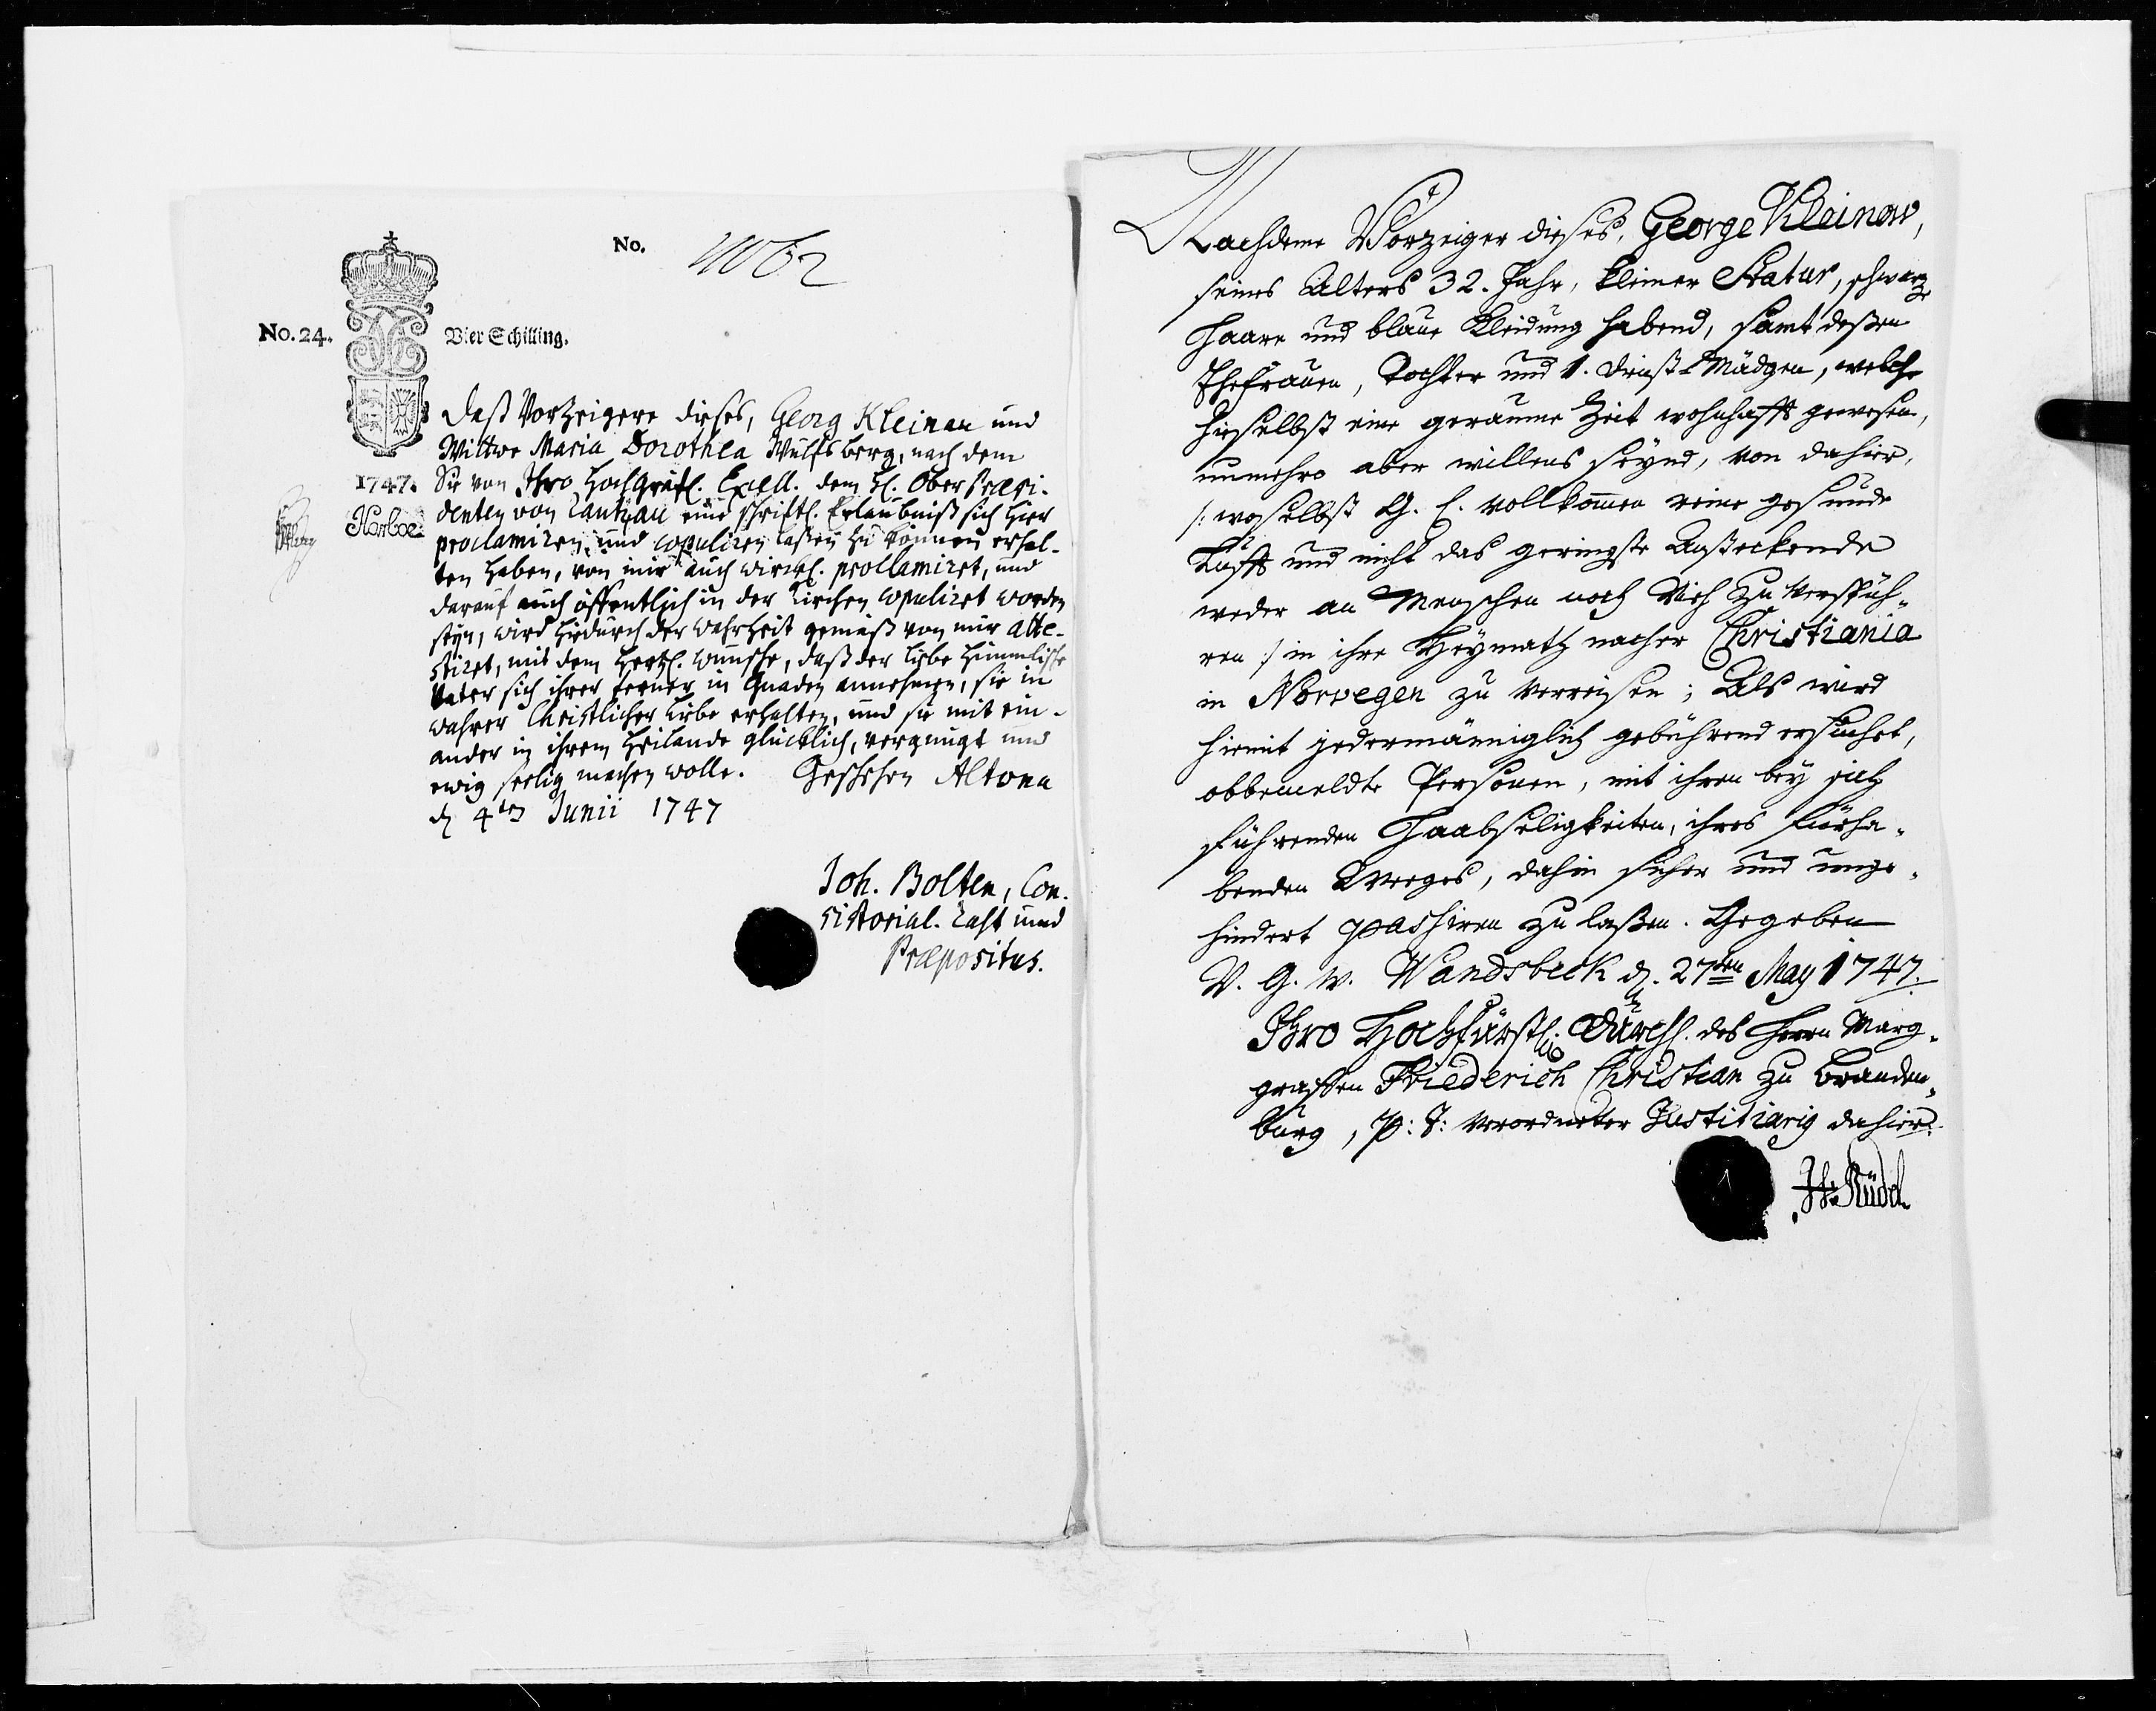 No.
No. 24.
Vier Schilling.
1747.
Harboe
Daß Vorzeigere dieses, Georg Kleinau und
Wittwe Maria Dorothea Wulfsberg, nach dem
Sie von Ihro Hochgräfl. Excell. dem H. Ober Præsi-
denten von Rantzau eine schriftl. Erlaubniß sich hier
proclamiren, und copuliren laßen zu können erhal-
ten haben, von mir auch wirckl. proclamiret, und
darauf auch öffentlich in der Kirchen copuliret worden
seyn, wird hiedurch der Wahrheit gemäß von mir atte-
stiret, mit dem hertzl. Wunsche, daß der liebe himmlische
Vater sich ihrer ferner in Gnaden annehmen, sie in
wahrer Christlicher Liebe erhalten, und sie mit ein-
ander in ihrem Heilande glücklich, vergnügt und
ewig seelig machen wolle. Geschehen Altona
d. 4ten Junii 1747
Joh. Bolten, Con-
sistorial-Raht und
Præpositus.
Nachdeme Vorzeiger dieses, George Kleinow,
seines Alters 32. Jahr, kleiner Statur, schwarze
Haare und blaue Kleidung habend, samt deßen
Ehefrauen, Tochter und 1. Dienst-Mädgen, welche
hieselbst eine geraume Zeit wohnhafft gewesen,
nunmehro aber willens seynd, von dahier,
/: woselbst G. L. vollkom̄en reine gesunde
Lufft und nicht das geringste Ansteckende
weder an Menschen noch Vieh zu verspüh-
ren :/ in ihre Heymath nacher Christiania
in Norvegen zu verreisen; Als wird
hiemit jedermänniglich gebührend ersuchet,
obbemeldte Personen, mit ihren bey sich
führenden Haabseligkeiten, ihres fürha-
benden Weeges, dahin sicher und unge-
hindert passiren zu laßen. Gegeben
V. G. W. Wandsbeck d. 27ten May 1747.
Ihro Hochfürstl. Durchl. des Herrn Marg-
graffen Friederich Christian zu Branden-
burg, p: t: verordneter Justitiarig dahier.